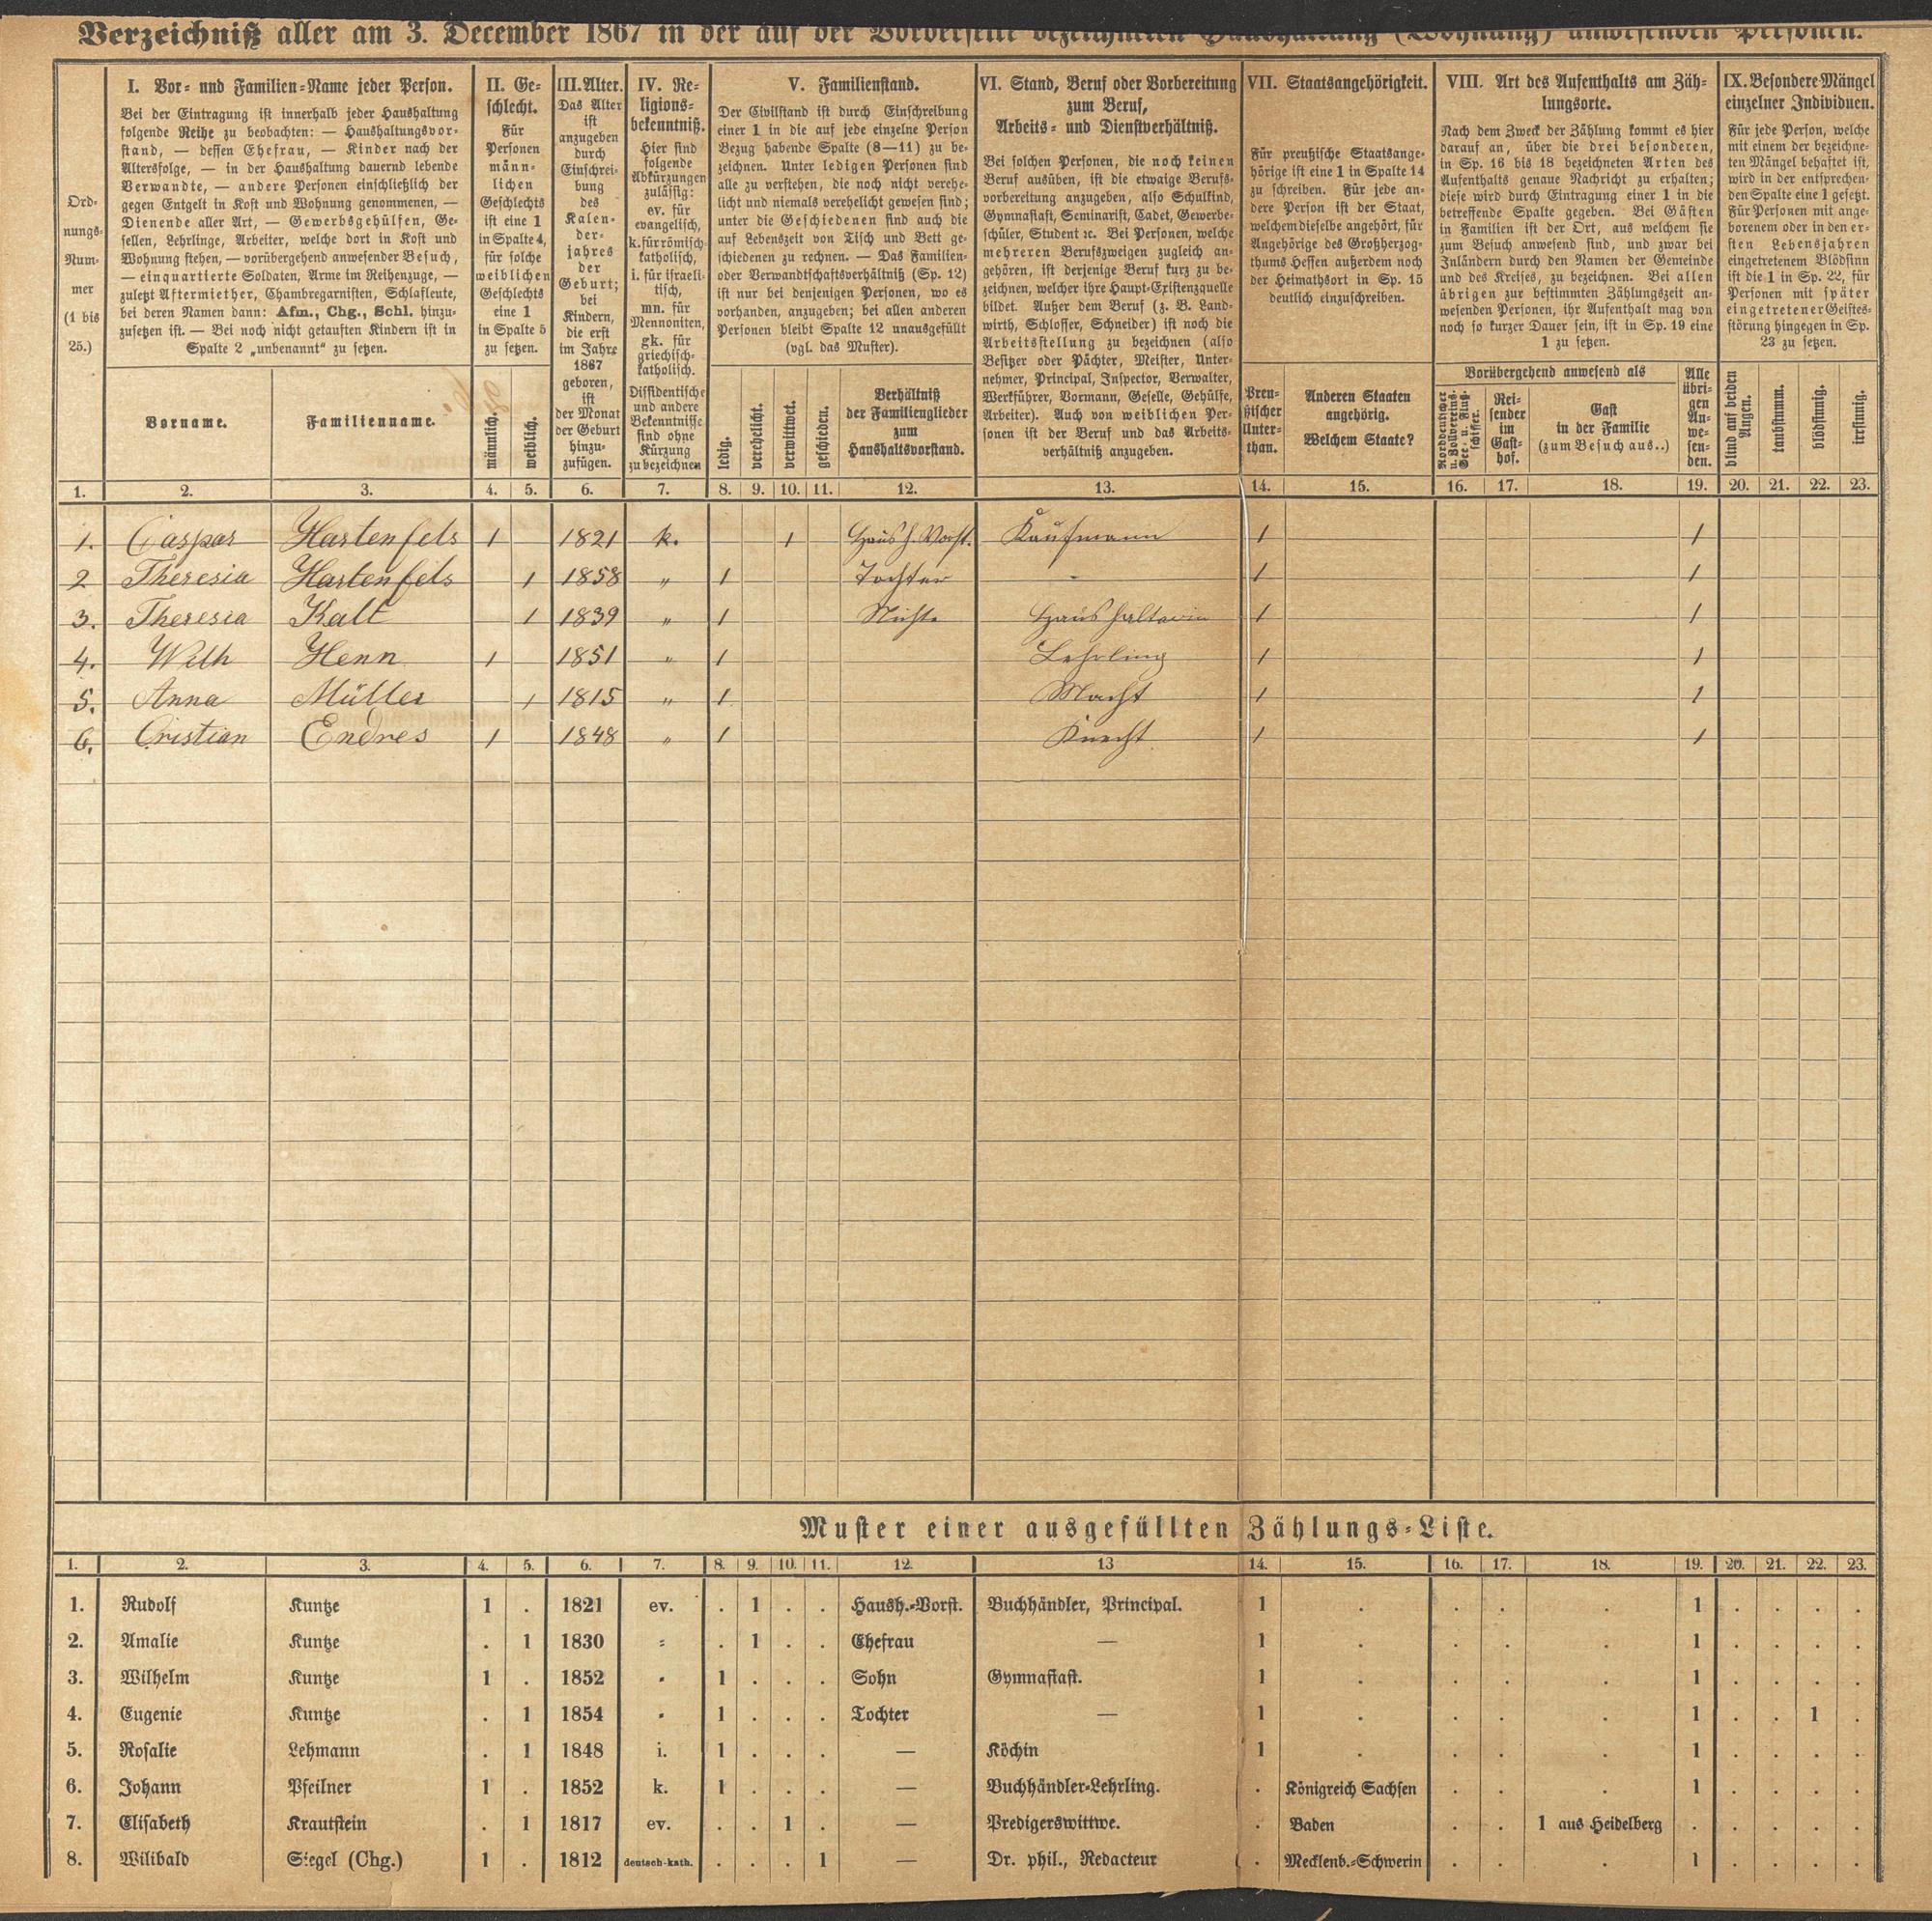 Verzeichniß aller am 3. December 1867 in der auf der Vorderseite bezeichneten Haushaltung (Wohnung) anwesenden Personen.
Ord-
nungs-
Num-
mer
(1 bis
25.)
I. Vor- und Familien-Name jeder Person.
Bei der Eintragung ist innerhalb jeder Haushaltung
folgende Reihe zu beobachten: — Haushaltungsvor-
stand, — dessen Ehefrau, — Kinder nach der
Altersfolge, — in der Haushaltung dauernd lebende
Verwandte, — andere Personen einschließlich der
gegen Entgelt in Kost und Wohnung genommenen, —
Dienende aller Art, — Gewerbsgehülfen, Ge-
sellen, Lehrlinge, Arbeiter, welche dort in Kost und
Wohnung stehen, — vorübergehend anwesender Besuch,
— einquartierte Soldaten, Arme im Reihenzuge, —
zuletzt Aftermiether, Chambregarnisten, Schlafleute,
bei deren Namen dann: Afm., Chg., Schl. hinzu-
zusetzen ist. — Bei noch nicht getauften Kindern ist in
Spalte 2 „unbenannt“ zu setzen.
Vorname.
Familienname.
II. Ge-
schlecht.
Für
Personen
männ-
lichen
Geschlechts
ist eine 1
in Spalte 4,
für solche
weiblichen
Geschlechts
eine 1
in Spalte 5
zu setzen.
männlich.
weiblich.
III. Alter.
Das Alter
ist
anzugeben
durch
Einschrei-
bung
des
Kalen-
der-
jahres
der
Geburt;
bei
Kindern,
die erst
im Jahre
1867
geboren,
ist
der Monat
der Geburt
hinzu-
zufügen.
IV. Re-
ligions-
bekenntniß.
Hier sind
folgende
Abkürzungen
zulässig:
ev. für
evangelisch,
k. für römisch-
katholisch,
i. für israeli-
tisch,
mn. für
Mennoniten,
gk. für
griechisch-
katholisch.
Dissidentische
und andere
Bekenntnisse
sind ohne
Kürzung
zu bezeichnen
V. Familienstand.
Der Civilstand ist durch Einschreibung
einer 1 in die auf jede einzelne Person
Bezug habende Spalte (8—11) zu be-
zeichnen. Unter ledigen Personen sind
alle zu verstehen, die noch nicht verehe-
licht und niemals verehelicht gewesen sind;
unter die Geschiedenen sind auch die
auf Lebenszeit von Tisch und Bett ge-
schiedenen zu rechnen. — Das Familien-
oder Verwandtschaftsverhältniß (Sp. 12)
ist nur bei denjenigen Personen, wo es
vorhanden, anzugeben; bei allen anderen
Personen bleibt Spalte 12 unausgefüllt
(vgl. das Muster).
ledig.
verehelicht.
verwittwet.
geschieden.
Verhältniß
der Familienglieder
zum
Haushaltsvorstand.
VI. Stand, Beruf oder Vorbereitung
zum Beruf,
Arbeits- und Dienstverhältniß.
Bei solchen Personen, die noch keinen
Beruf ausüben, ist die etwaige Berufs-
vorbereitung anzugeben, also Schulkind,
Gymnasiast, Seminarist, Cadet, Gewerbe-
schüler, Student ꝛc. Bei Personen, welche
mehreren Berufszweigen zugleich an-
gehören, ist derjenige Beruf kurz zu be-
zeichnen, welcher ihre Haupt-Existenzquelle
bildet. Außer dem Beruf (z. B. Land-
wirth, Schlosser, Schneider) ist noch die
Arbeitsstellung zu bezeichnen (also
Besitzer oder Pächter, Meister, Unter-
nehmer, Principal, Inspector, Verwalter,
Werkführer, Vormann, Geselle, Gehülfe,
Arbeiter). Auch von weiblichen Per-
sonen ist der Beruf und das Arbeits-
verhältniß anzugeben.
VII. Staatsangehörigkeit.
Für preußische Staatsange-
hörige ist eine 1 in Spalte 14
zu schreiben. Für jede an-
dere Person ist der Staat,
welchem dieselbe angehört, für
Angehörige des Großherzog-
thums Hessen außerdem noch
der Heimathsort in Sp. 15
deutlich einzuschreiben.
Preu-
ßischer
Unter-
than.
Anderen Staaten
angehörig.
Welchem Staate?
VIII. Art des Aufenthalts am Zäh-
lungsorte.
Nach dem Zweck der Zählung kommt es hier
darauf an, über die drei besonderen,
in Sp. 16 bis 18 bezeichneten Arten des
Aufenthalts genaue Nachricht zu erhalten;
diese wird durch Eintragung einer 1 in die
betreffende Spalte gegeben. Bei Gästen
in Familien ist der Ort, aus welchem sie
zum Besuch anwesend sind, und zwar bei
Inländern durch den Namen der Gemeinde
und des Kreises, zu bezeichnen. Bei allen
übrigen zur bestimmten Zählungszeit an-
wesenden Personen, ihr Aufenthalt mag von
noch so kurzer Dauer sein, ist in Sp. 19 eine
1 zu setzen.
Vorübergehend anwesend als
Norddeutscher
u. Zollvereins-
See- u. Fluß-
schiffer.
Rei-
sender
im
Gast-
hof.
Gast
in der Familie
(zum Besuch aus..)
Alle
übri-
gen
An-
we-
sen-
den.
IX. Besondere Mängel
einzelner Individuen.
Für jede Person, welche
mit einem der bezeichne-
ten Mängel behaftet ist,
wird in der entsprechen-
den Spalte eine 1 gesetzt.
Für Personen mit ange-
borenem oder in den er-
sten Lebensjahren
eingetretenem Blödsinn
ist die 1 in Sp. 22, für
Personen mit später
eingetretener Geistes-
störung hingegen in Sp.
23 zu setzen.
blind auf beiden
Augen.
taubstumm.
blödsinnig.
irrsinnig.
1. 2. 3. 4. 5. 6. 7. 8. 9. 10. 11. 12. 13. 14. 15. 16. 17. 18. 19. 20. 21. 22. 23.
1. Caspar Hartenfels 1 1821 k. 1 Haush. Vorst. Kaufmann 1 1
2 Theresia Hartenfels 1 1858 " 1 Tochter - 1 1
3. Theresia Kalt 1 1839 " 1 Nichte Haushalterin 1 1
4. Wilh Henn 1 1851 " 1 Lehrling 1 1
5. Anna Müller 1 1815 " 1 Macht 1 1
6. Cristian Endres 1 1848 " 1 Knecht 1 1
Muster einer ausgefüllten Zählungs-Liste.
1. 2. 3. 4. 5. 6. 7. 8. 9. 10. 11. 12. 13 14. 15. 16. 17. 18. 19. 20. 21. 22. 23.
1. Rudolf Kuntze 1 . 1821 ev. . 1 . . Haush.-Vorst. Buchhändler, Principal. 1 . . . . 1 . . . .
2. Amalie Kuntze . 1 1830 " . 1 . . Ehefrau — 1 . . . . 1 . . . .
3. Wilhelm Kuntze 1 . 1852 " 1 . . . Sohn Gymnasiast. 1 . . . . 1 . . . .
4. Eugenie Kuntze . 1 1854 " 1 . . . Tochter — 1 . . . . 1 . . 1 .
5. Rosalie Lehmann . 1 1848 i. 1 . . . — Köchin 1 . . . . 1 . . . .
6. Johann Pfeilner 1 . 1852 k. 1 . . . — Buchhändler-Lehrling. . Königreich Sachsen . . . 1 . . . .
7. Elisabeth Krautstein . 1 1817 ev. . . 1 . — Predigerswittwe. . Baden . . 1 aus Heidelberg . . . . .
8. Wilibald Siegel (Chg.) 1 . 1812 deutsch-kath. . . . 1 — Dr. phil., Redacteur . Mecklenb.-Schwerin . . . 1 . . . .